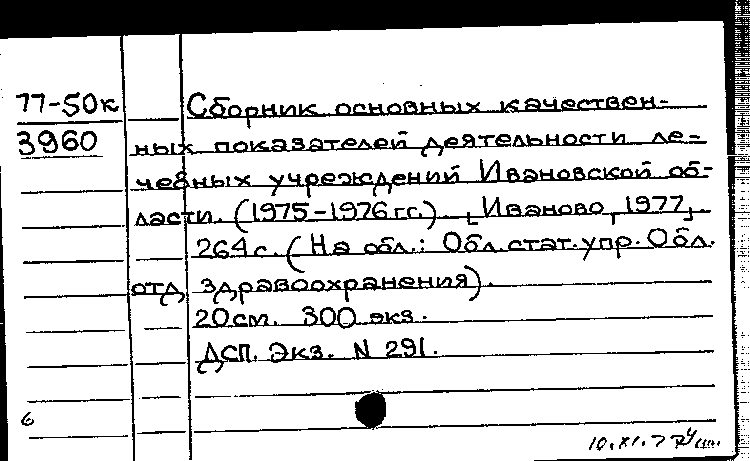 77-50к
3960
Сборник основных качествен-
ных показателей деятельности ле-
чебных учреждений Ивановской об-
ласти. (1975-1976 гг.). [Иваново, 1977].
264 с. (На обл.: Обл. стат. упр. Обл.
отд. здравоохранения).
20 см. 300 экз.
ДСП. Экз. N 291.
6
10.XI.77